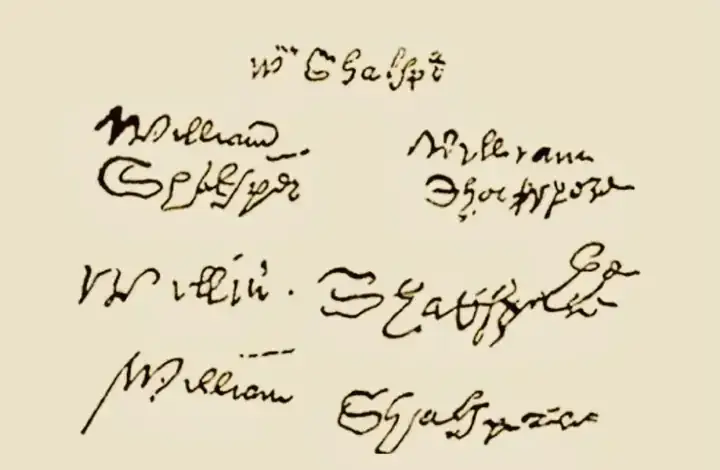 Wm Shakspe
William
Shakspēr
William
Shakspere
William Shakspere
William Shakspeare